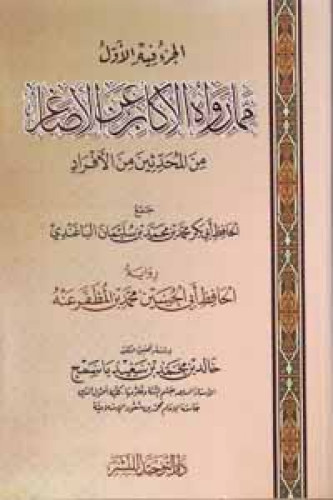 الجزء فيه الأول
مما رواه الأكابر عن الأصاغر
من المحدثين من الأفراد
جمع
الحافظ أبي بكر محمد بن محمد بن سليمان الباغندي
رواية
الحافظ أبي الحسين محمد بن المظفر عنه
خالد بن محمد بن سعيد باسمح
جامعة الإمام محمد بن سعود الإسلامية
دار التوحيد للنشر